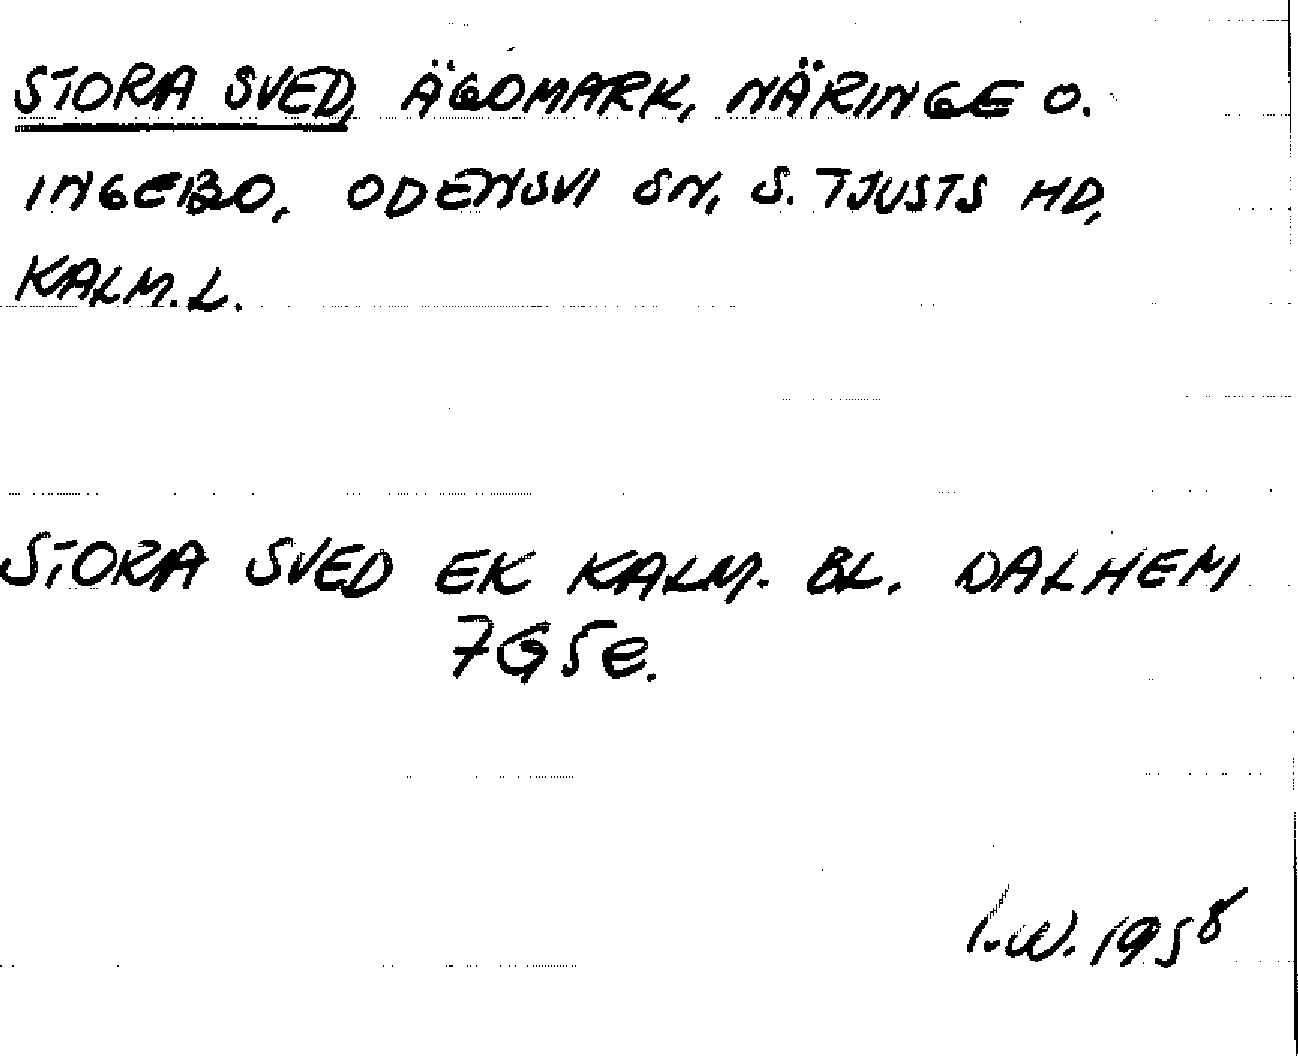 STORA SVED, ÄGOMARK, NÄRINGE O.
INGEBO, ODENSVI SN, S. TJUSTS HD,
KALM. L.
STORA SVED EK KALM. BL. DALHEM
7G5e.
I.W. 1958